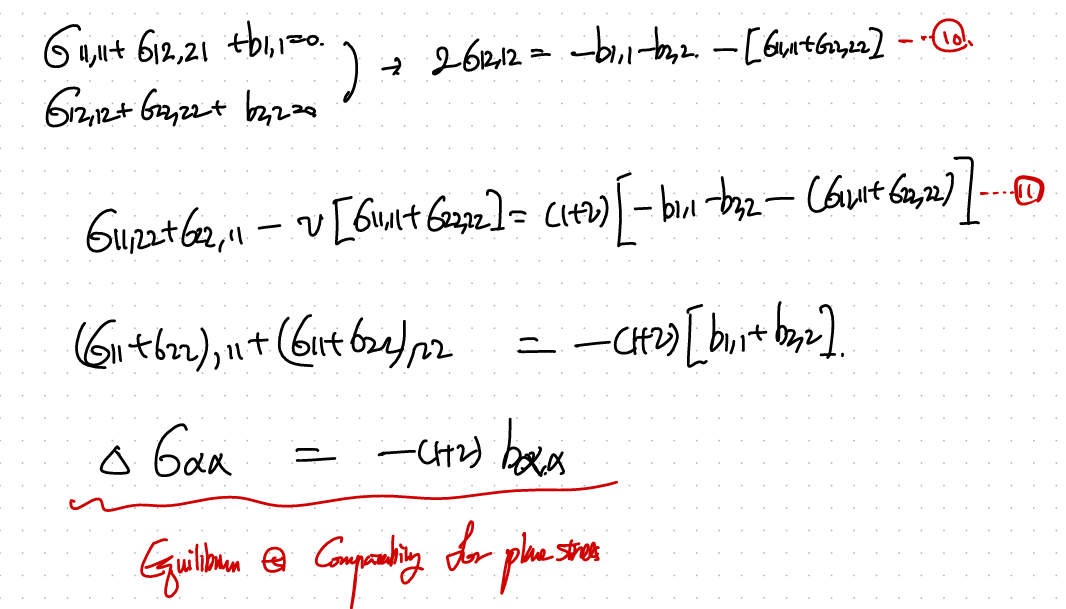 σ11,11 + σ12,21 + b1,1 = 0.
σ12,12 + σ22,22 + b2,2 = 0
) → 2σ12,12 = -b1,1 - b2,2. - [σ11,11 + σ22,22] --- ⑩.
σ11,22 + σ22,11 - ν[σ11,11 + σ22,22] = (1+ν)[-b1,1 - b2,2 - (σ11,11 + σ22,22)] ---- ⑪
(σ11 + σ22),11 + (σ11 + σ22),22 = -(1+ν)[b1,1 + b2,2].
Δ σαα = -(1+ν) bα,α
for plane stress